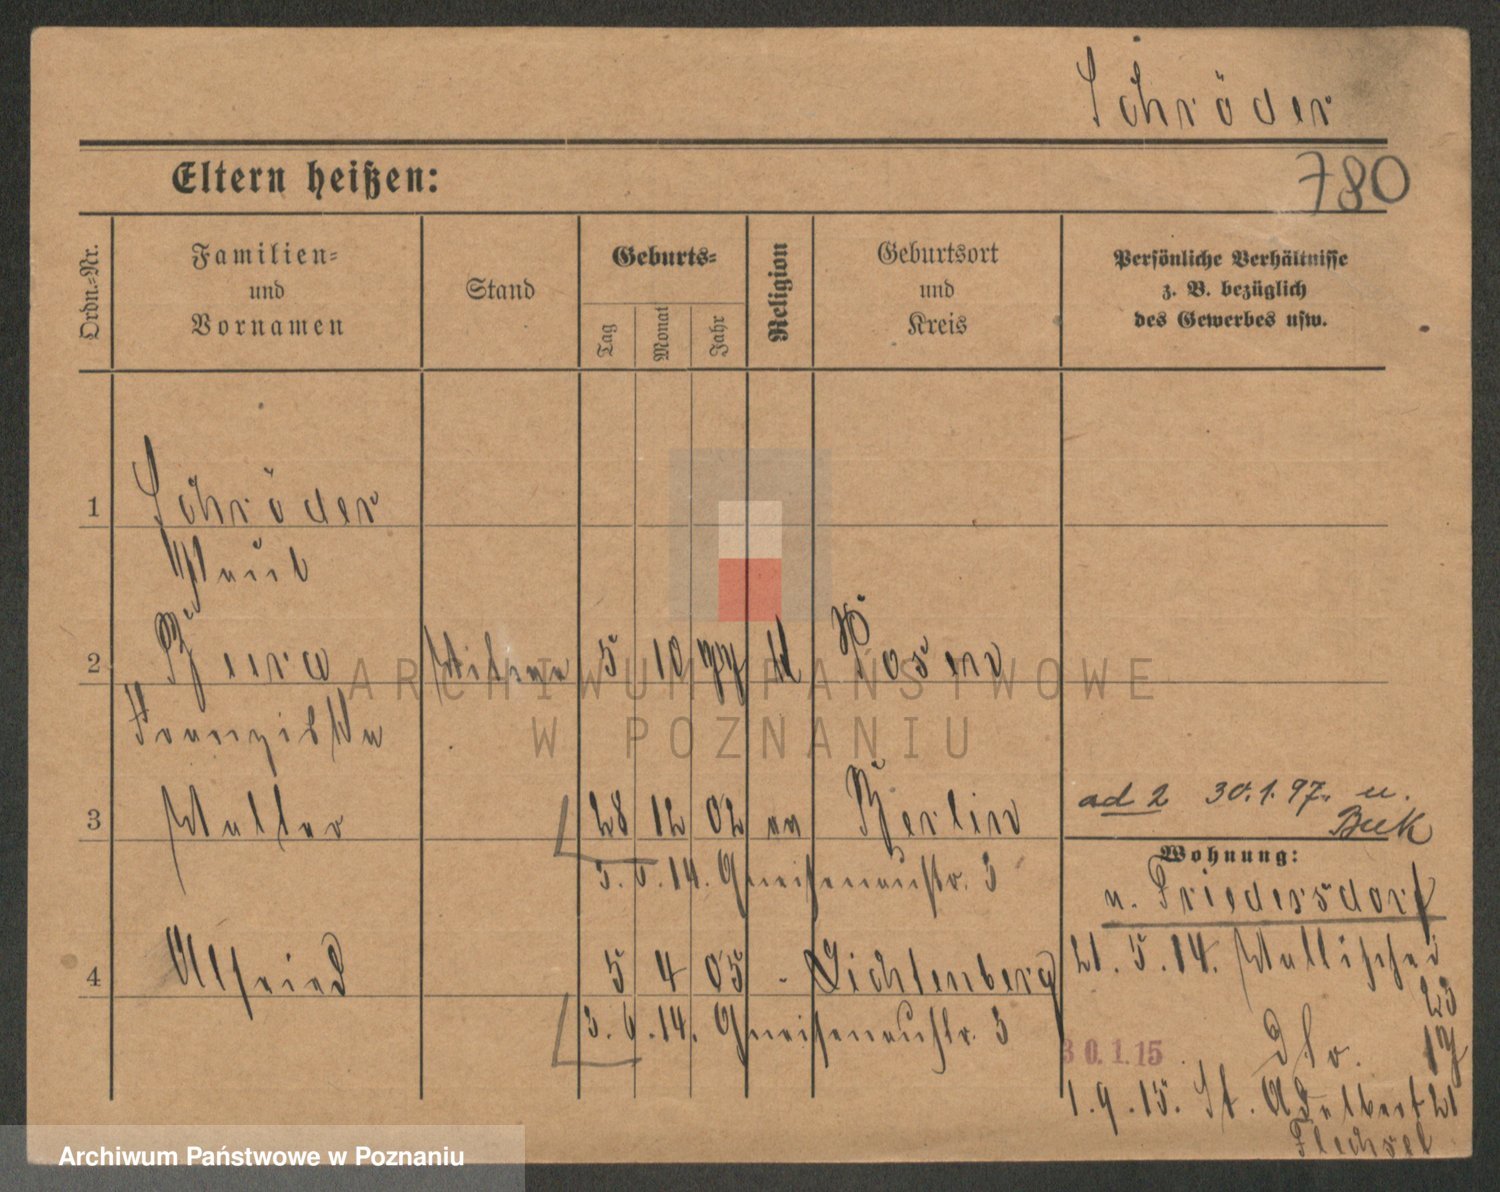 Schröder
780
Eltern heißen:
Ordn.-Nr.
Familien-
und
Vornamen
Stand
Geburts-
Tag
Monat
Jahr
Religion
Geburtsort
und
Kreis
Persönliche Verhältnisse
z. B. bezüglich
des Gewerbes usw.
1 Schröder
2 Witwe 5 10 77 K Posen
Franziska
3 Walter 28 12 02 ev Berlin
ad 2 30.1.97. u. Buk
3. 6. 14. Gneisenaustr. 3
Wohnung:
n. Friedersdorf
4 Alfried 5 4 05 - Lichtenberg
21. 5. 14. Wallischei
23
3. 6. 14. Gneisenaustr. 3
30.1.15
dto. 17
1. 9. 15. St. Adalbert 21
Flechsel
ARCHIWUM PAŃSTWOWE
W POZNANIU
Archiwum Państwowe w Poznaniu